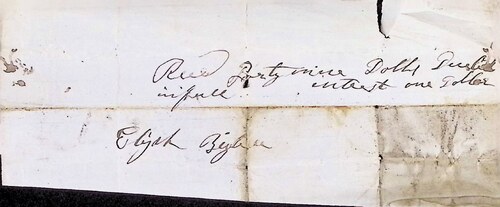 Recd Forty nine Dolls
in full interest one Doller
Elijah